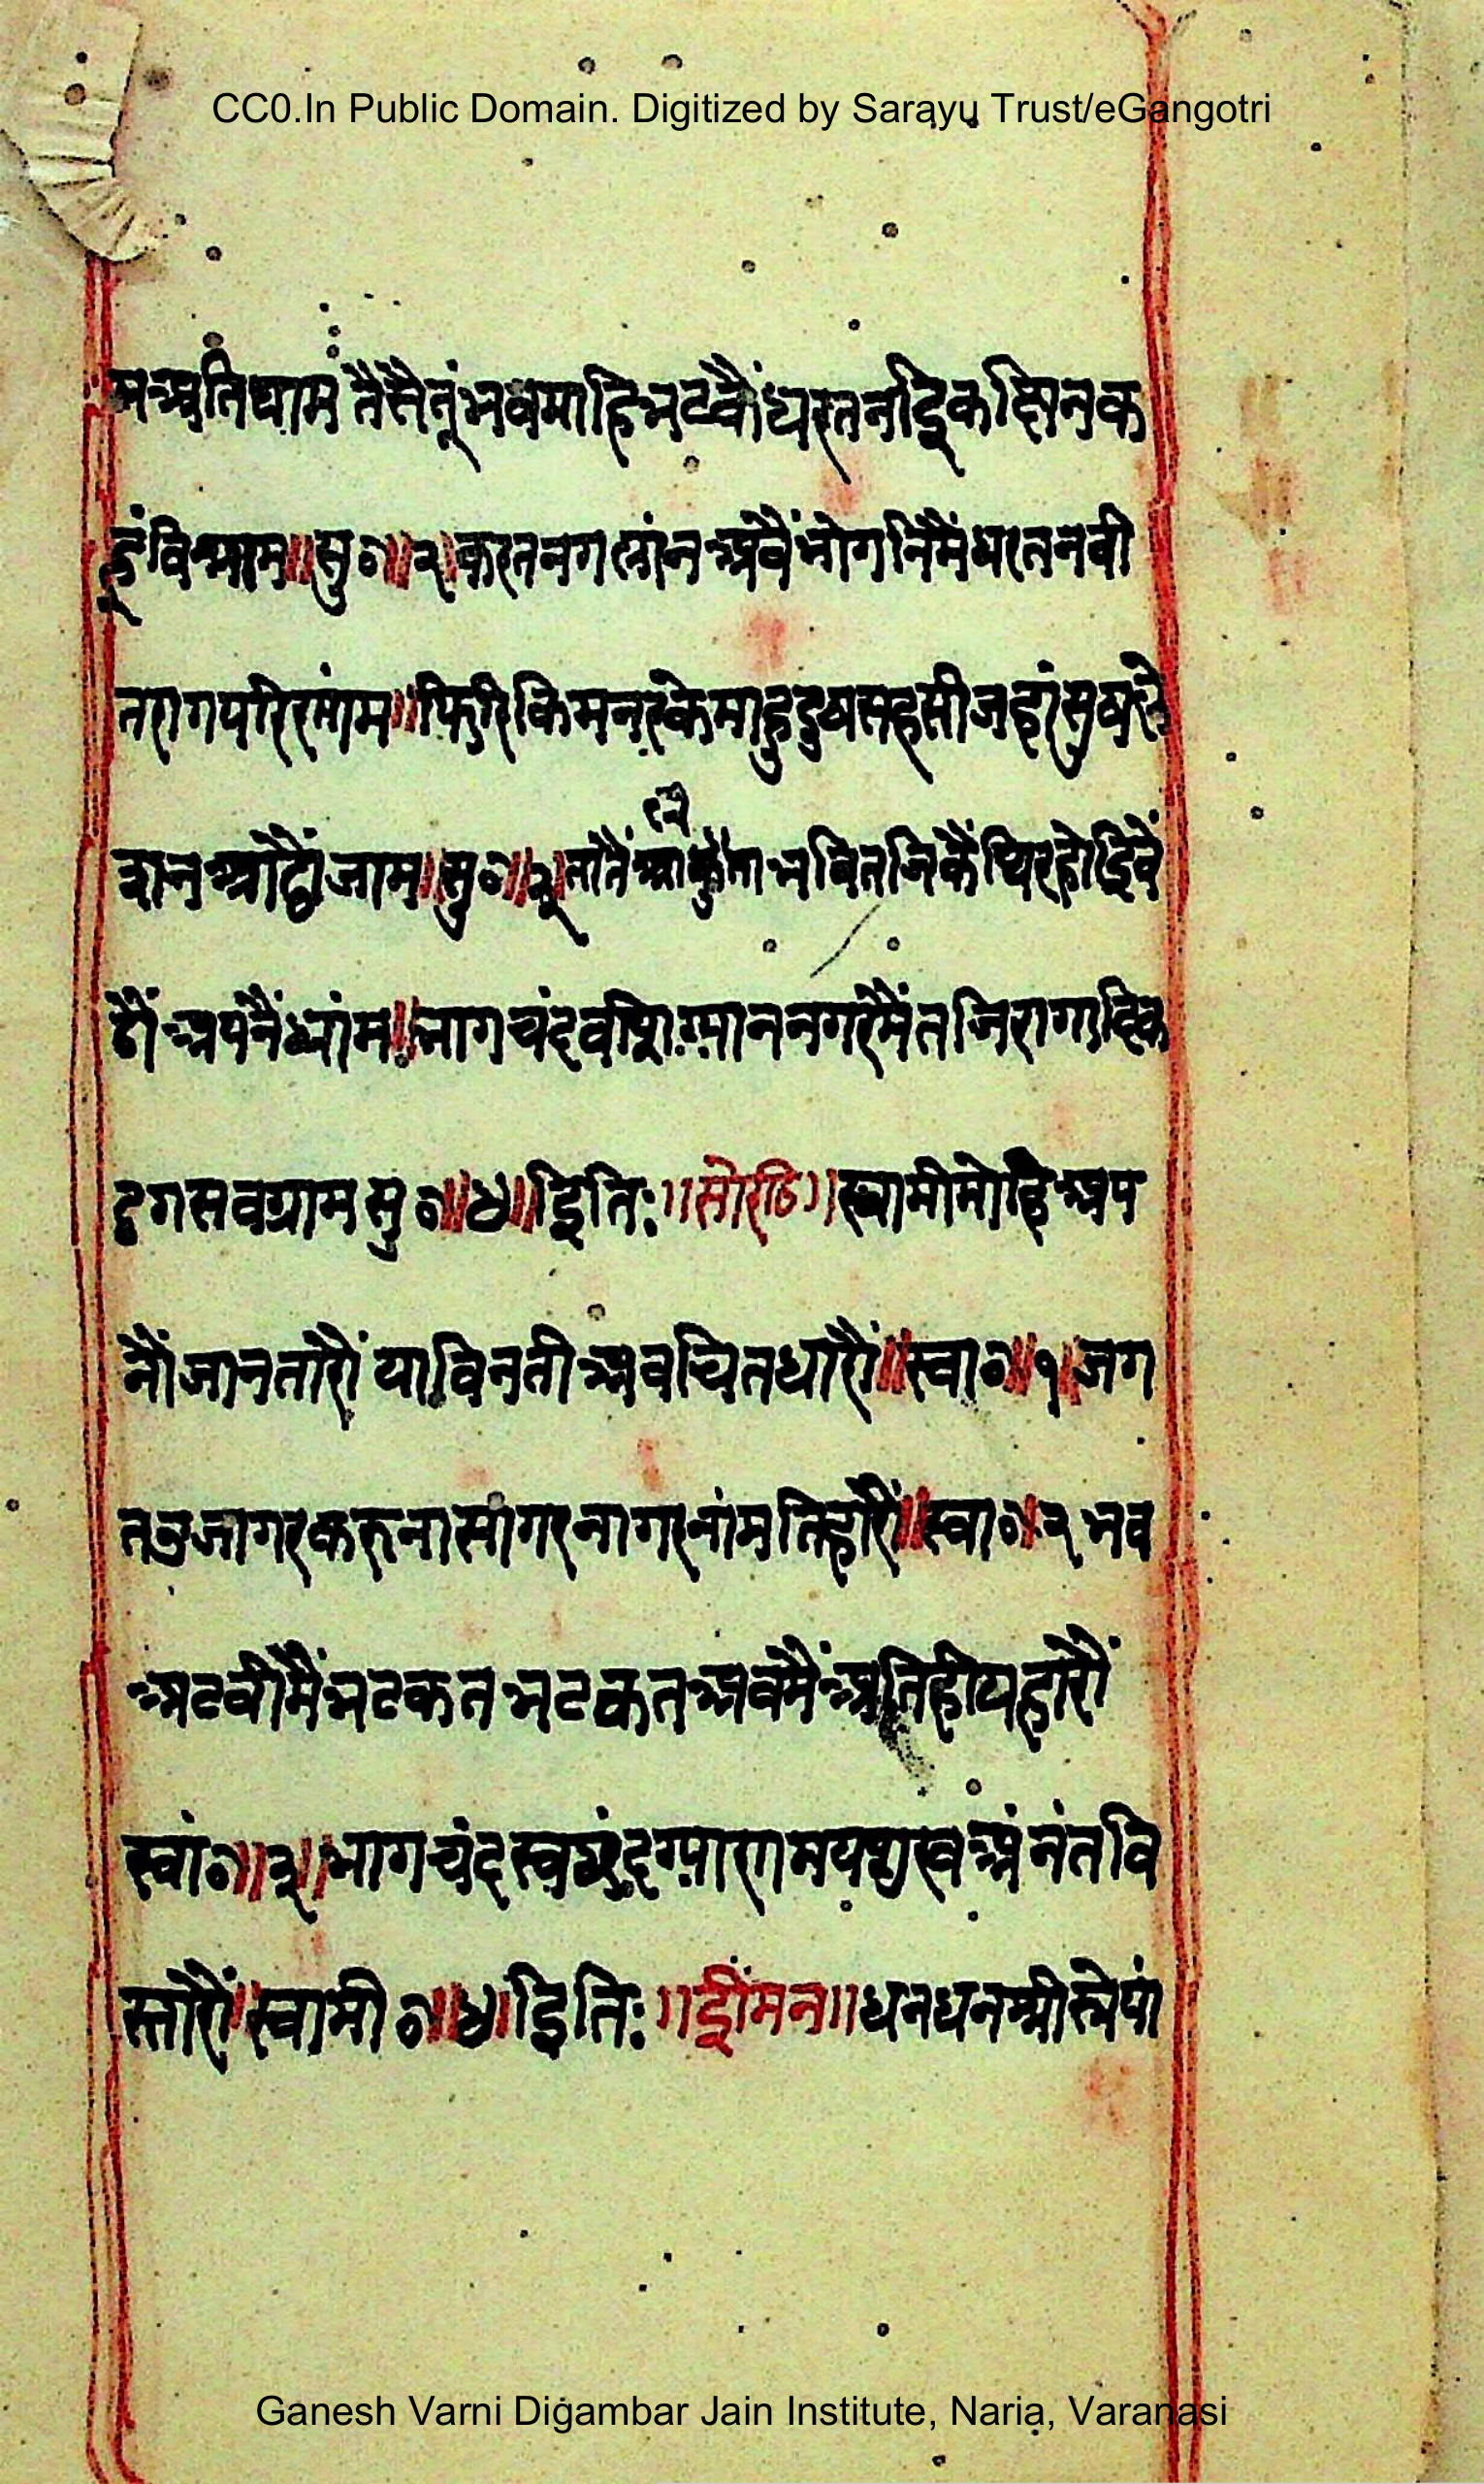 CC0.In Public Domain. Digitized by Sarayu Trust/eGangotri
म अति घाम तैसै तूं भवमाहि भटकैं धरत न इक छिन क
हूं विश्राम ॥ सु० ॥ २ ॥ करत न गलांन अवैं भोगनिमैं धरत न वी
तराग परिरमांम ॥ फिरि किम नरकेमाहु दुष सहसी जहां सुष
आठौं जाम ॥ सु० ॥ ३ तातैं आकुलता भवि तजिकैं थिर होइ वै
ठौं अपनैं धांम ॥ भागचंद वसि ग्यान नगरमैं तजि रागादिक
ठग सव ग्राम सु० ॥ ४ ॥ इति: ॥ सोरठि ॥ स्वामी मोहि अप
नौं जान तारौं या विनती अव चित धारौं ॥ स्वा० ॥ १ ॥ जग
त उजागर करुनासागर नागर नांम तिहारौं ॥ स्वा० ॥ २ भव
अटवीमैं भटकत भटकत अव मैं अति ही यहारौं
स्वां० ॥ ३ ॥ भागचंद स्वछंद ग्यारामय अनंत वि
स्तारौं ॥ स्वामी० ॥ ४ ॥ इति: ॥ ईमन ॥ धन धन श्री
Ganesh Varni Digambar Jain Institute, Naria, Varanasi